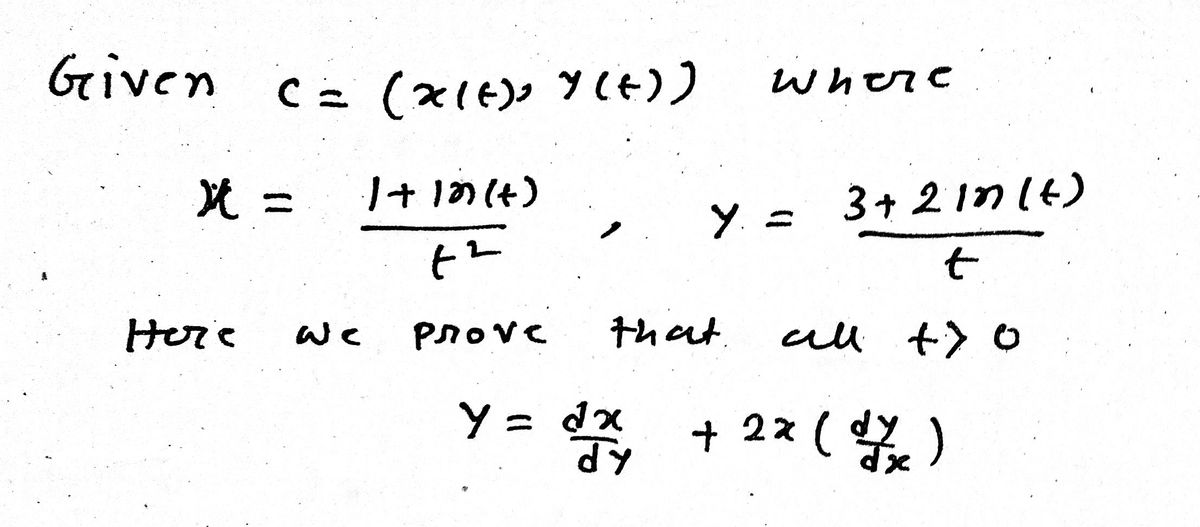 Given C = (x(t), y(t)) where
x = (1 + ln(t)) / t², y = (3 + 2 ln(t)) / t
Here we prove that all t > 0
y = dx/dy + 2x (dy/dx)